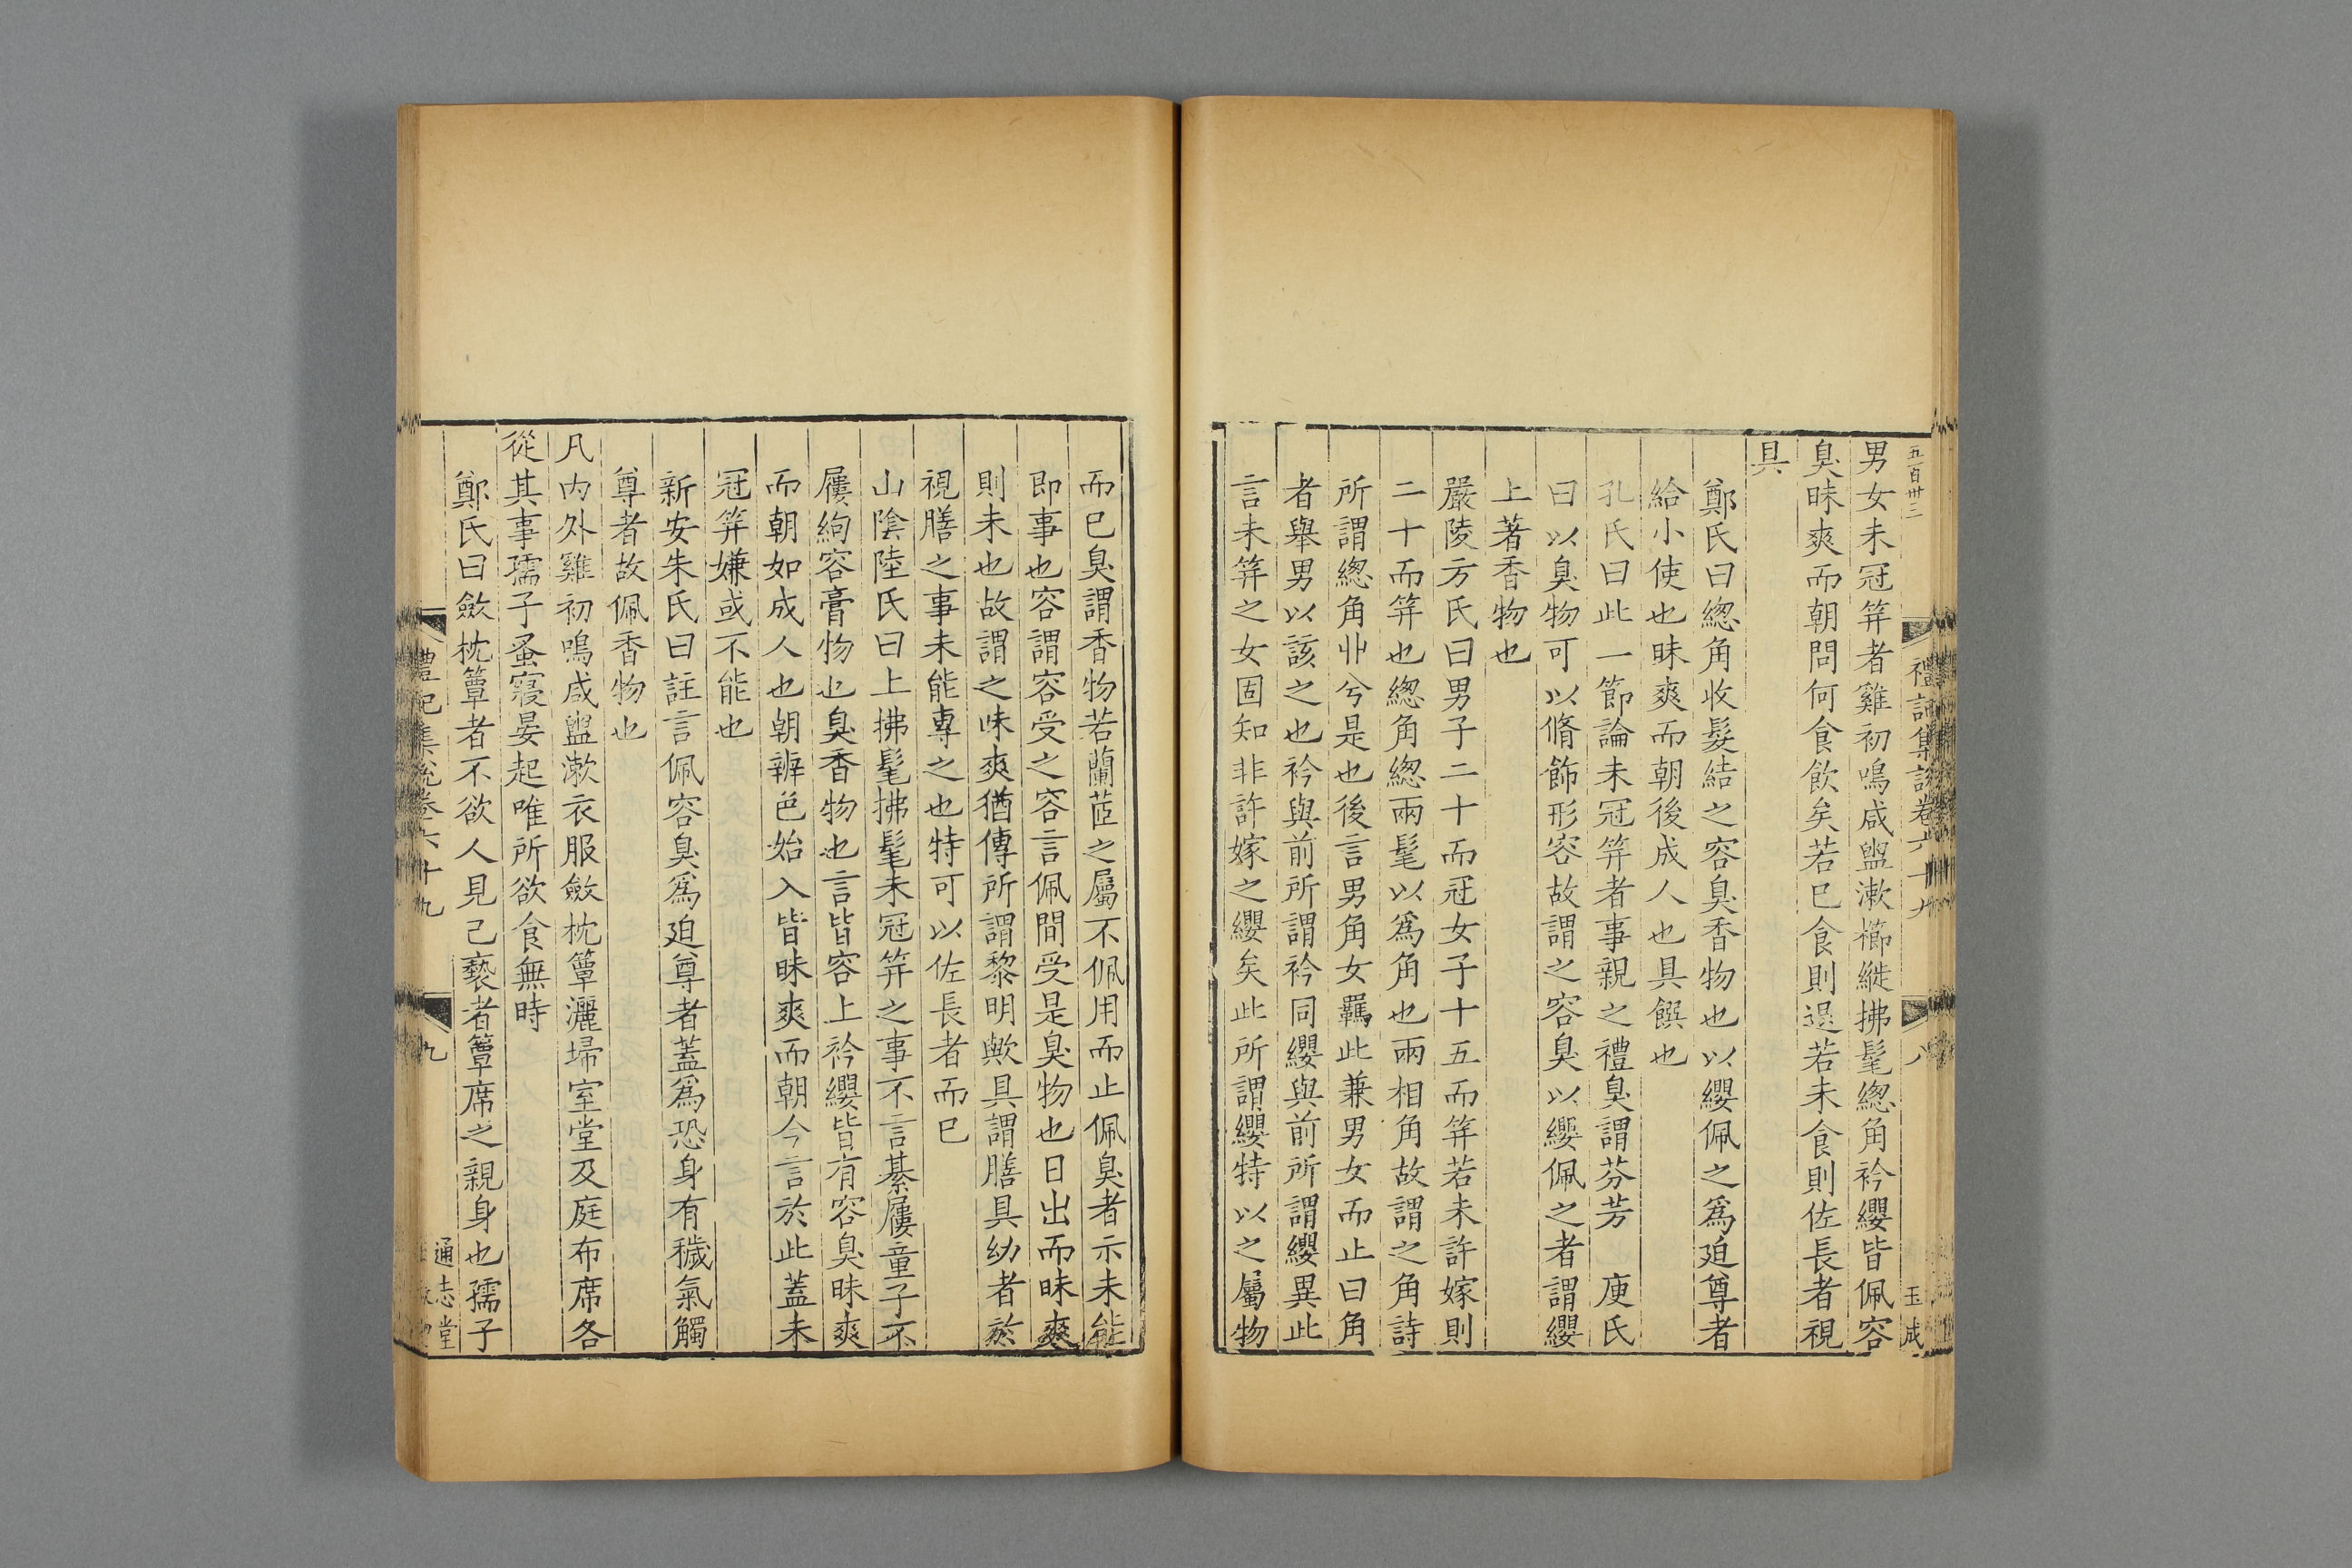 五百卅三
禮記集說卷六十九
八
玉成
男女未冠笄者雞初鳴咸盥漱櫛縰拂髦緫角衿纓皆佩容
臭昧爽而朝問何食飲矣若已食則退若未食則佐長者視
具
鄭氏曰緫角收髮結之容臭香物也以纓佩之爲廹尊者
給小使也昧爽而朝後成人也具饌也
孔氏曰此一節論未冠笄者事親之禮臭謂芬芳 庾氏
曰以臭物可以脩飾形容故謂之容臭以纓佩之者謂纓
上著香物也
嚴陵方氏曰男子二十而冠女子十五而笄若未許嫁則
二十而笄也緫角緫兩髦以爲角也兩相角故謂之角詩
所謂緫角丱兮是也後言男角女羈此兼男女而止曰角
者舉男以該之也衿與前所謂衿同纓與前所謂纓異此
言未笄之女固知非許嫁之纓矣此所謂纓特以之屬物
而已臭謂香物若蘭茝之屬不佩用而止佩臭者示未能
即事也容謂容受之容言佩間受是臭物也日出而昧爽
則未也故謂之昧爽猶傳所謂黎明歟具謂膳具幼者於
視膳之事未能專之也特可以佐長者而已
山陰陸氏曰上拂髦拂髦未冠笄之事不言綦屨童子不
屨絇容膏物也臭香物也言皆容上衿纓皆有容臭昧爽
而朝如成人也朝辨色始入皆昧爽而朝今言於此蓋未
冠笄嫌或不能也
新安朱氏曰註言佩容臭爲廹尊者蓋爲恐身有穢氣觸
尊者故佩香物也
凡内外雞初鳴咸盥漱衣服斂枕簟灑埽室堂及庭布席各
從其事孺子蚤寢晏起唯所欲食無時
鄭氏曰斂枕簟者不欲人見己褻者簟席之親身也孺子
禮記集說卷六十九
九
通志堂